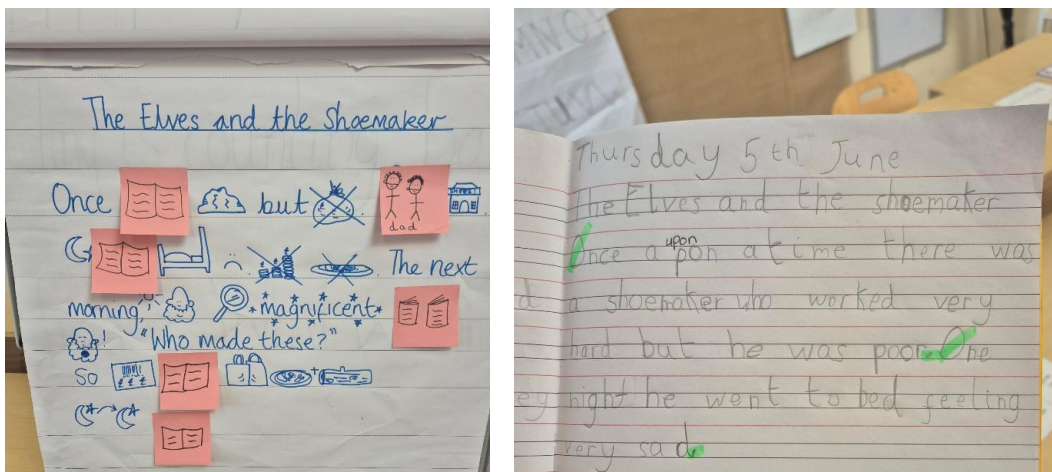 The Elves and the Shoemaker
Once but
dad
The next
morning, magnificent
! "Who made these?"
So
Thursday 5th June
The Elves and the shoemaker
upon
Once a pon a time there was
a shoemaker who worked very
hard but he was poor. One
night he went to bed feeling
very sad.